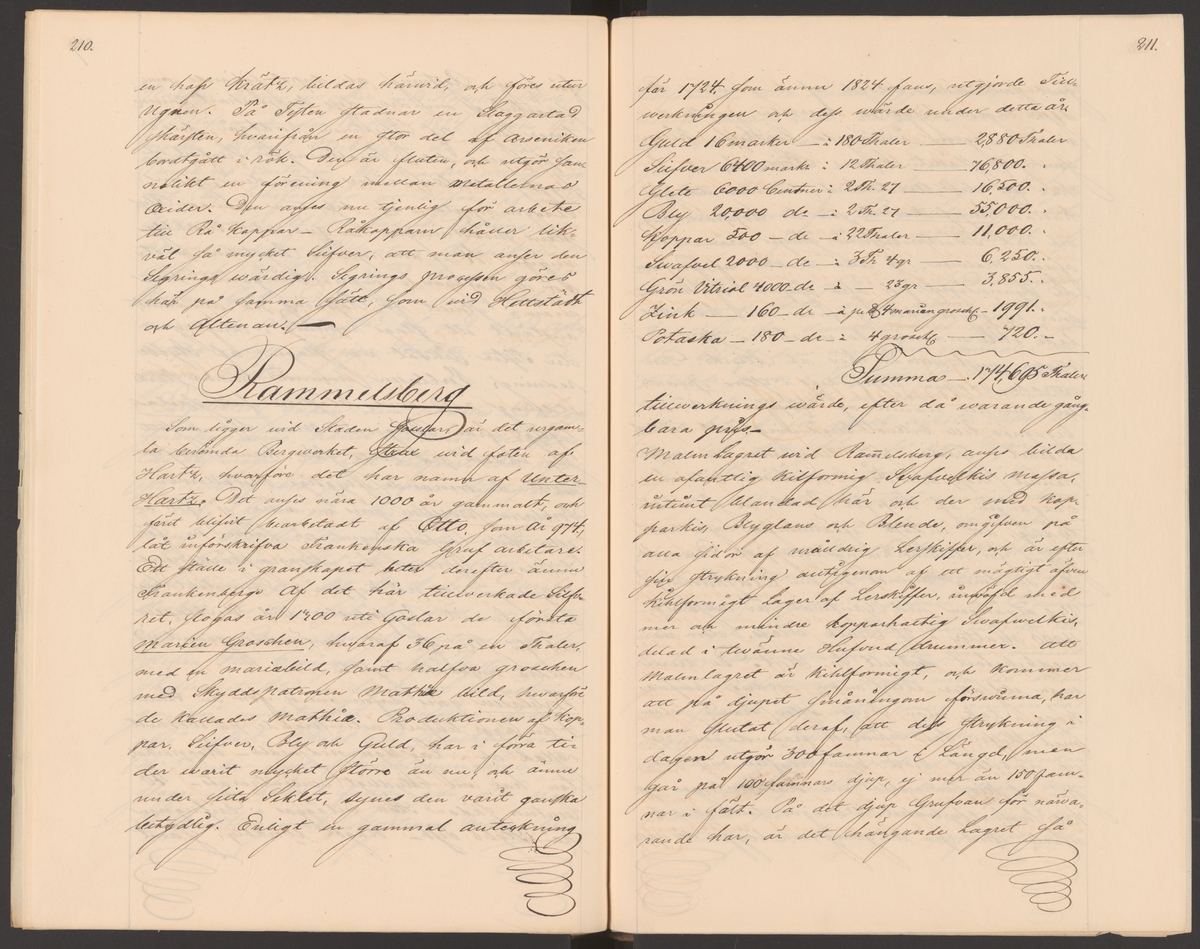 210.
en hop Krätz, bildas härvid, och föres utur
Ugnen. På Testen stadnar en Slaggartad
Skärsten, hvarifrån en stor del af Arseniken
bordtgått i rök. Den är fluten, och utgör san-
nolikt en förening mellan Metallernas
Oxider. Den anses nu tjenlig för arbete
till Rå Koppar – Råkopparn håller lik-
väl så mycket Silfver, att man anser den
Segrings wärdig. Segrings processen göres
här på samma sätt, som vid Hettstädt
och Altenau. —
Rammelsberg
Som ligger vid Staden Goslar, är det urgam-
la berömda Bergverket, vid foten af
Hartz, hvarföre det har namn af Unter
Hartz. Det anses nära 1000 år gammalt, och
först blifvit bearbetadt af Otto, som år 974,
låt införskrifva Frankenska Gruf arbetare.
Ett ställe i granskapet heter derefter ännu
Frankenberg. Af det här tillverkade Silfv-
ret, slogos år 1500 uti Goslar de första
Marien Groschen, hvaraf 36 på en Thaler,
med en mariebild, samt halfva groschen
med Skyddspatronen Mathiæ bild, hvarföre
de kallades Mathiæ. Produktionen af Kop-
par, Silfver, Bly och Guld, har i förra ti-
der warit mycket större än nu, och ännu
under sista Seklet, synes den varit ganska
betydlig. Enligt en gammal anteckning
211.
för 1724, som ännu 1824 fans, utgjorde Till-
werkningen och dess wärde under detta år,
Guld 16 marker — à 180 Thaler — 2,880 Thaler
Silfver 6400 markr à 12 Thaler — 76,800. "
Glete 6000 Centner à 2 Th. 27 — 16,500. "
Bly 20,000 do — à 2 Th. 27 — 55,000. "
Koppar 500 — do — à 22 Thaler — 11,000. "
Swafvel 2000 — do — à 3 Th 4 gr — 6,250. "
Grön Vitriol 4000 do — à — 23 gr — 3,855. "
Zink — 160 — do — à 4 mariengrosch. — 1991. "
Potaska — 180 — do — à 4 grosch — 720. "
Summa — 174,695 Thaler
tillwerknings wärde, efter då warande gång-
bara pris. —
Malm Lagret wid Ramelsberg, anses bilda
en ofantlig kilformig Swafvelkis massa,
intimt blandad här och der med Kop-
parkis, Blyglans och Blende, omgifven på
alla sidor af Lerskiffer, och är efter
sin strykning åtskiljd genom af ett mägtigt äfven
kihlformigt Lager af Lerskiffer, med
mer och mindre kopparhaltig Swafwelkis,
delad i twänne Hufvud drummer. Att
Malmlagret är kihlformigt, och kommer
att på djupet småningom försvinna, har
man slutat deraf, att dess strykning i
dagen utgör 300 famnar i Längd, men
går på 100 famnars djup, ej mer än 150 fam-
nar i fält. På det djup Grufvans för närva-
rande har, är det hängande Lagret så